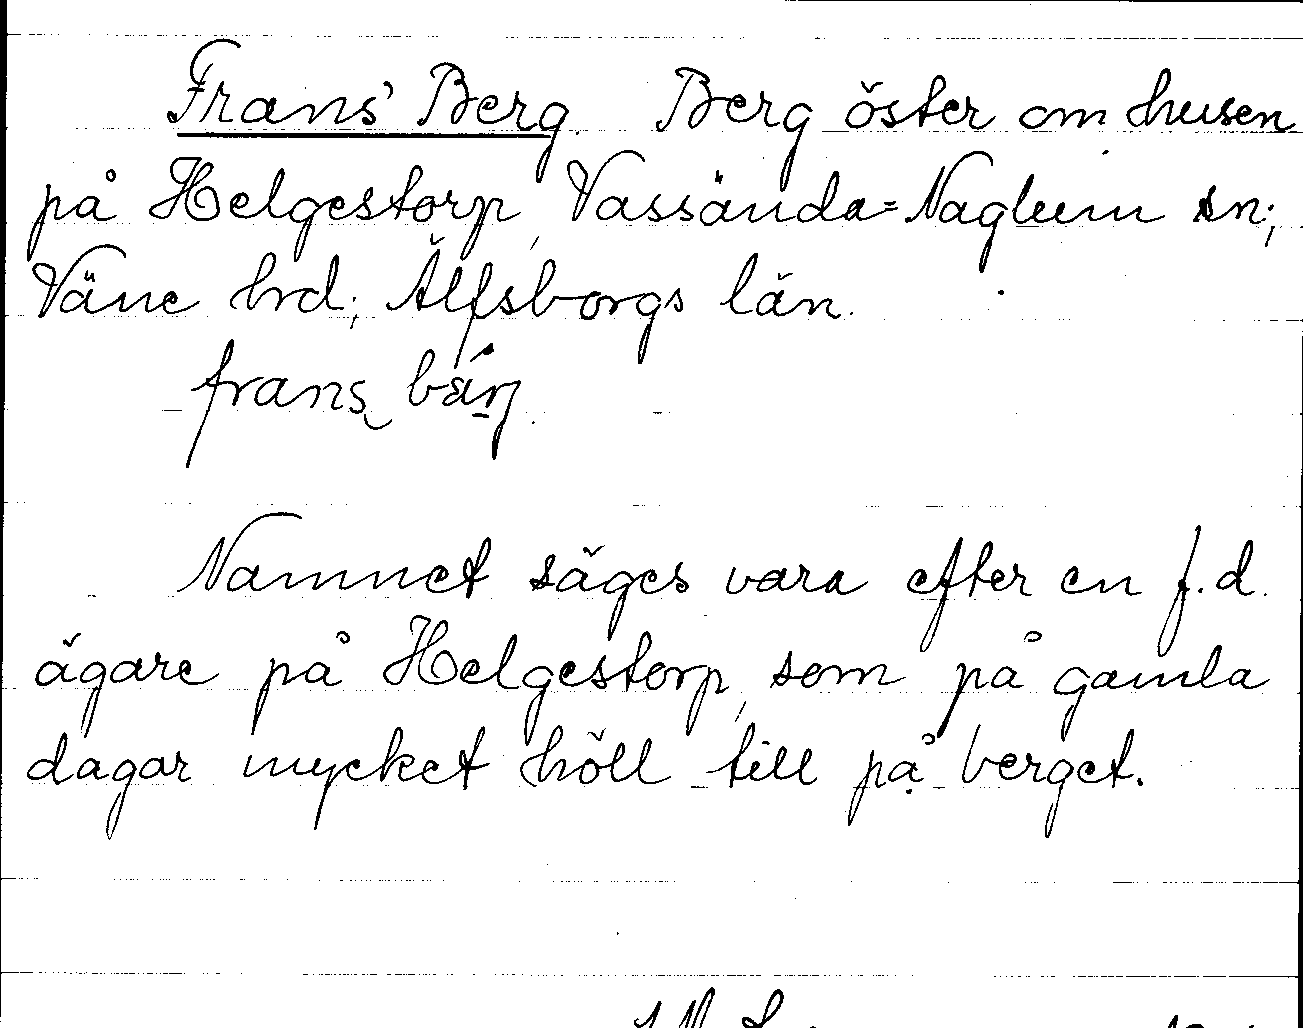 Frans' Berg. Berg öster om husen
på Helgestorp, Vassända-Naglum sn;
Väne hrd; Älfsborgs län.
frans bärj.
Namnet säges vara efter en f.d.
ägare på Helgestorp, som på gamla
dagar mycket höll till på berget.